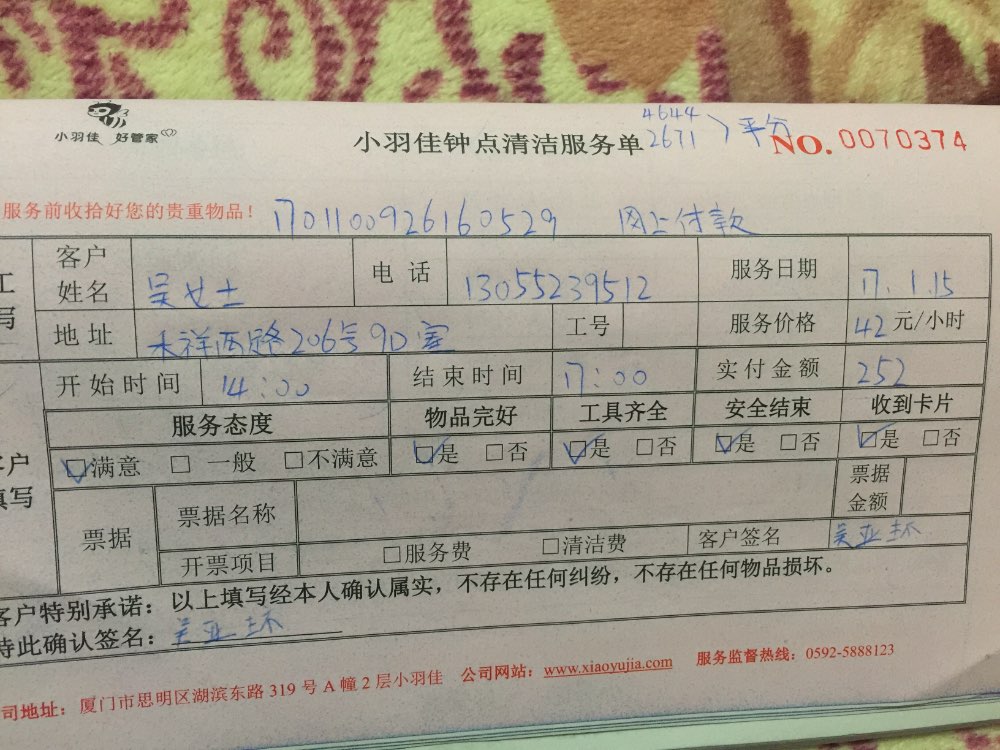 小羽佳 好管家
小羽佳钟点清洁服务单
4644
2671 平分
NO. 0070374
服务前收拾好您的贵重物品！
1701100926160529 网上付款
客户姓名 吴女士 电话 13055239512 服务日期 17.1.15
地址 禾祥西路206号9D室 工号 服务价格 42元/小时
开始时间 14:00 结束时间 17:00 实付金额 252
服务态度 物品完好 工具齐全 安全结束 收到卡片
☑满意 □一般 □不满意 ☑是 □否 ☑是 □否 ☑是 □否 ☑是 □否
票据 票据名称 票据金额
开票项目 □服务费 □清洁费 客户签名 吴亚环
客户特别承诺：以上填写经本人确认属实，不存在任何纠纷，不存在任何物品损坏。
特此确认签名：吴亚环
司地址：厦门市思明区湖滨东路 319 号 A 幢 2 层小羽佳 公司网站：www.xiaoyujia.com 服务监督热线：0592-5888123